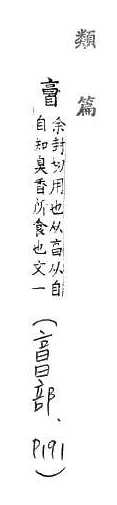 類篇
余封切用也从亯从自
自知臭香所食也文一
(亯部、P191)